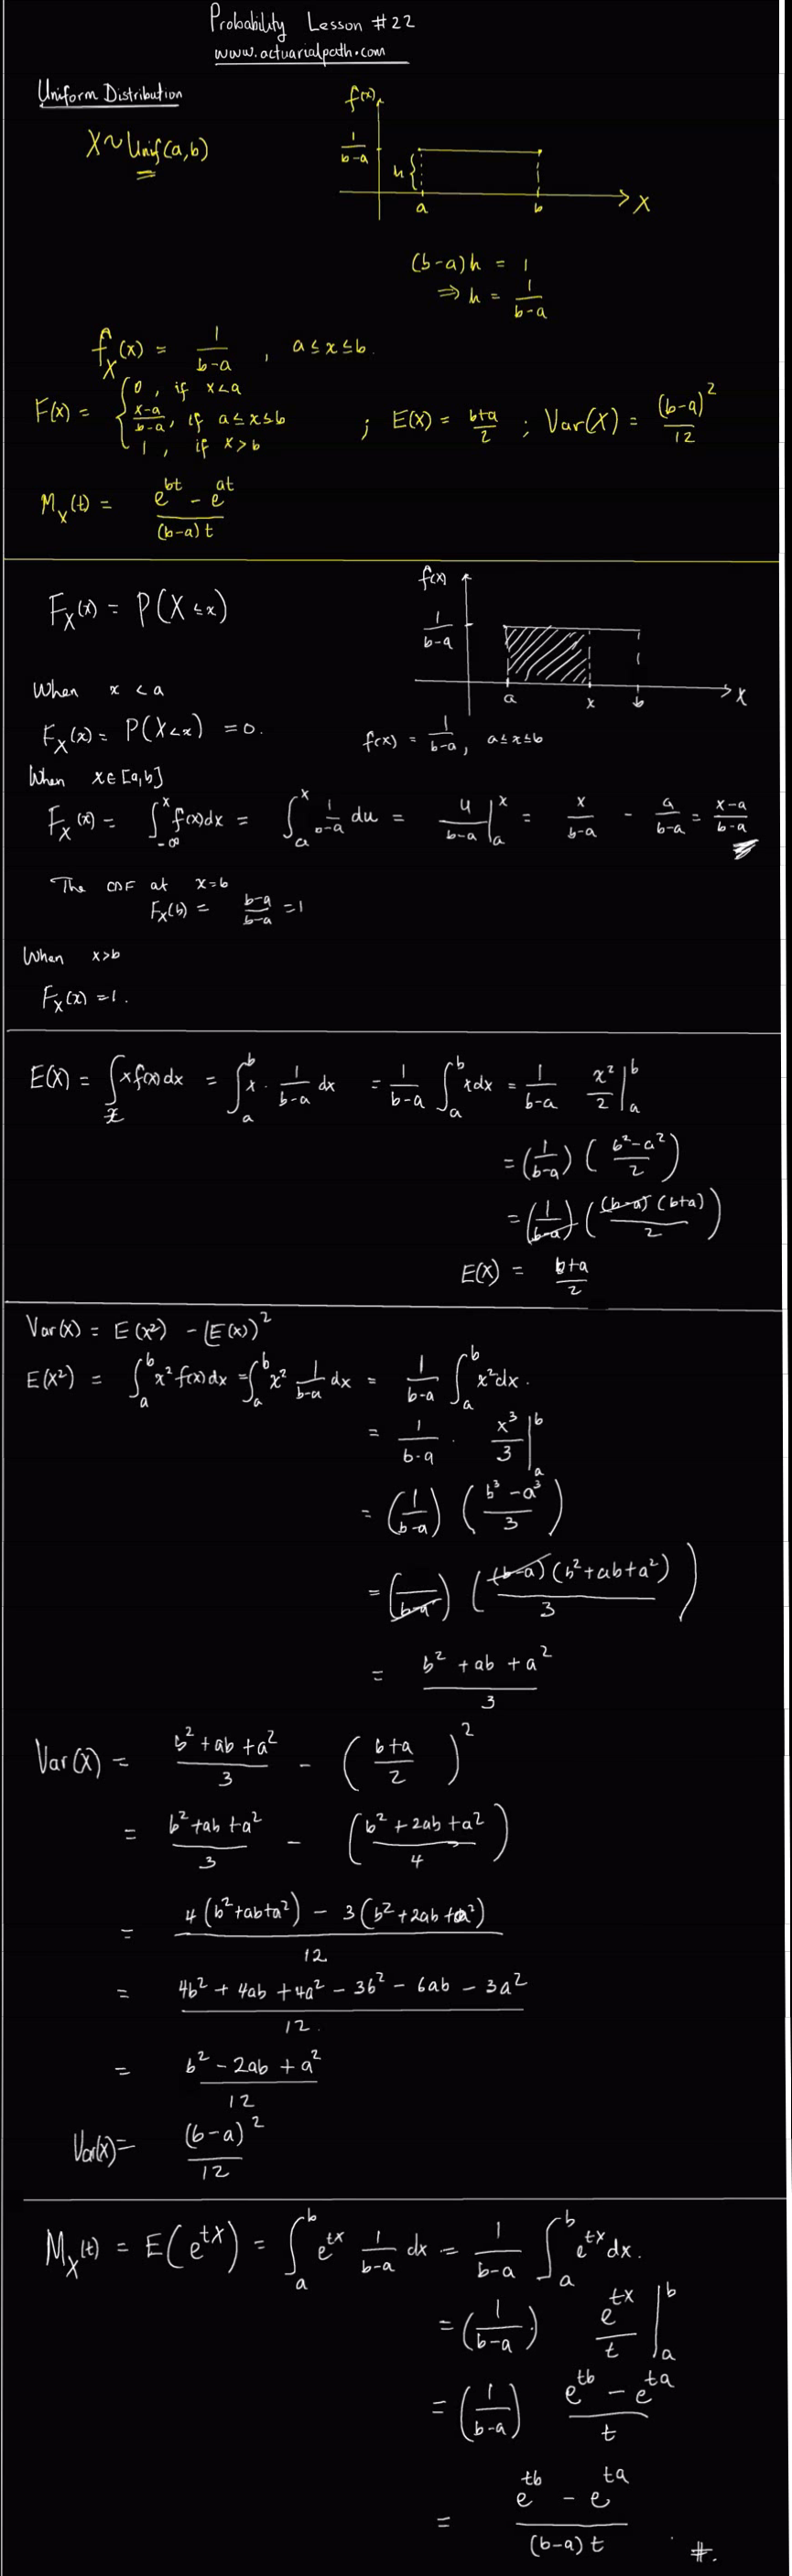 Probability Lesson #22
www.actuarialpath.com
Uniform Distribution
X ~ Unif(a,b)
f(x)
1/(b-a)
h {
a b X
(b-a)h = 1
⇒ h = 1/(b-a)
f_X(x) = 1/(b-a) , a ≤ x ≤ b.
F(x) = { 0, if x<a
(x-a)/(b-a), if a ≤ x ≤ b
1, if x > b
; E(X) = (b+a)/2 ; Var(X) = (b-a)²/12
M_X(t) = (e^bt - e^at)/((b-a)t)
F_X(x) = P(X ≤ x)
f(x)
1/(b-a)
a x b X
f(x) = 1/(b-a), a ≤ x ≤ b
When x < a
F_X(x) = P(X<x) = 0.
When x∈[a,b]
F_X(x) = ∫_{-∞}^x f(x)dx = ∫_a^x 1/(b-a) du = u/(b-a) |_a^x = x/(b-a) - a/(b-a) = (x-a)/(b-a)
The CDF at x=b
F_X(b) = (b-a)/(b-a) = 1
When x>b
F_X(x) = 1.
E(X) = ∫_x x f(x) dx = ∫_a^b x · 1/(b-a) dx = 1/(b-a) ∫_a^b x dx = 1/(b-a) x²/2 |_a^b
= (1/(b-a)) ((b²-a²)/2)
= (1/(b-a)) ((b-a)(b+a)/2)
E(X) = (b+a)/2
Var(X) = E(X²) - (E(X))²
E(X²) = ∫_a^b x² f(x) dx = ∫_a^b x² 1/(b-a) dx = 1/(b-a) ∫_a^b x² dx.
= 1/(b-a) · x³/3 |_a^b
= (1/(b-a)) ((b³-a³)/3)
= (1/(b-a)) ((b-a)(b²+ab+a²)/3)
= (b²+ab+a²)/3
Var(X) = (b²+ab+a²)/3 - ((b+a)/2)²
= (b²+ab+a²)/3 - ((b²+2ab+a²)/4)
= (4(b²+ab+a²) - 3(b²+2ab+a²))/12
= (4b²+4ab+4a²-3b²-6ab-3a²)/12.
= (b²-2ab+a²)/12
Var(X) = (b-a)²/12
M_X(t) = E(e^tX) = ∫_a^b e^tx 1/(b-a) dx = 1/(b-a) ∫_a^b e^tx dx.
= (1/(b-a)) e^tx/t |_a^b
= (1/(b-a)) (e^tb - e^ta)/t
= (e^tb - e^ta)/((b-a)t) #.